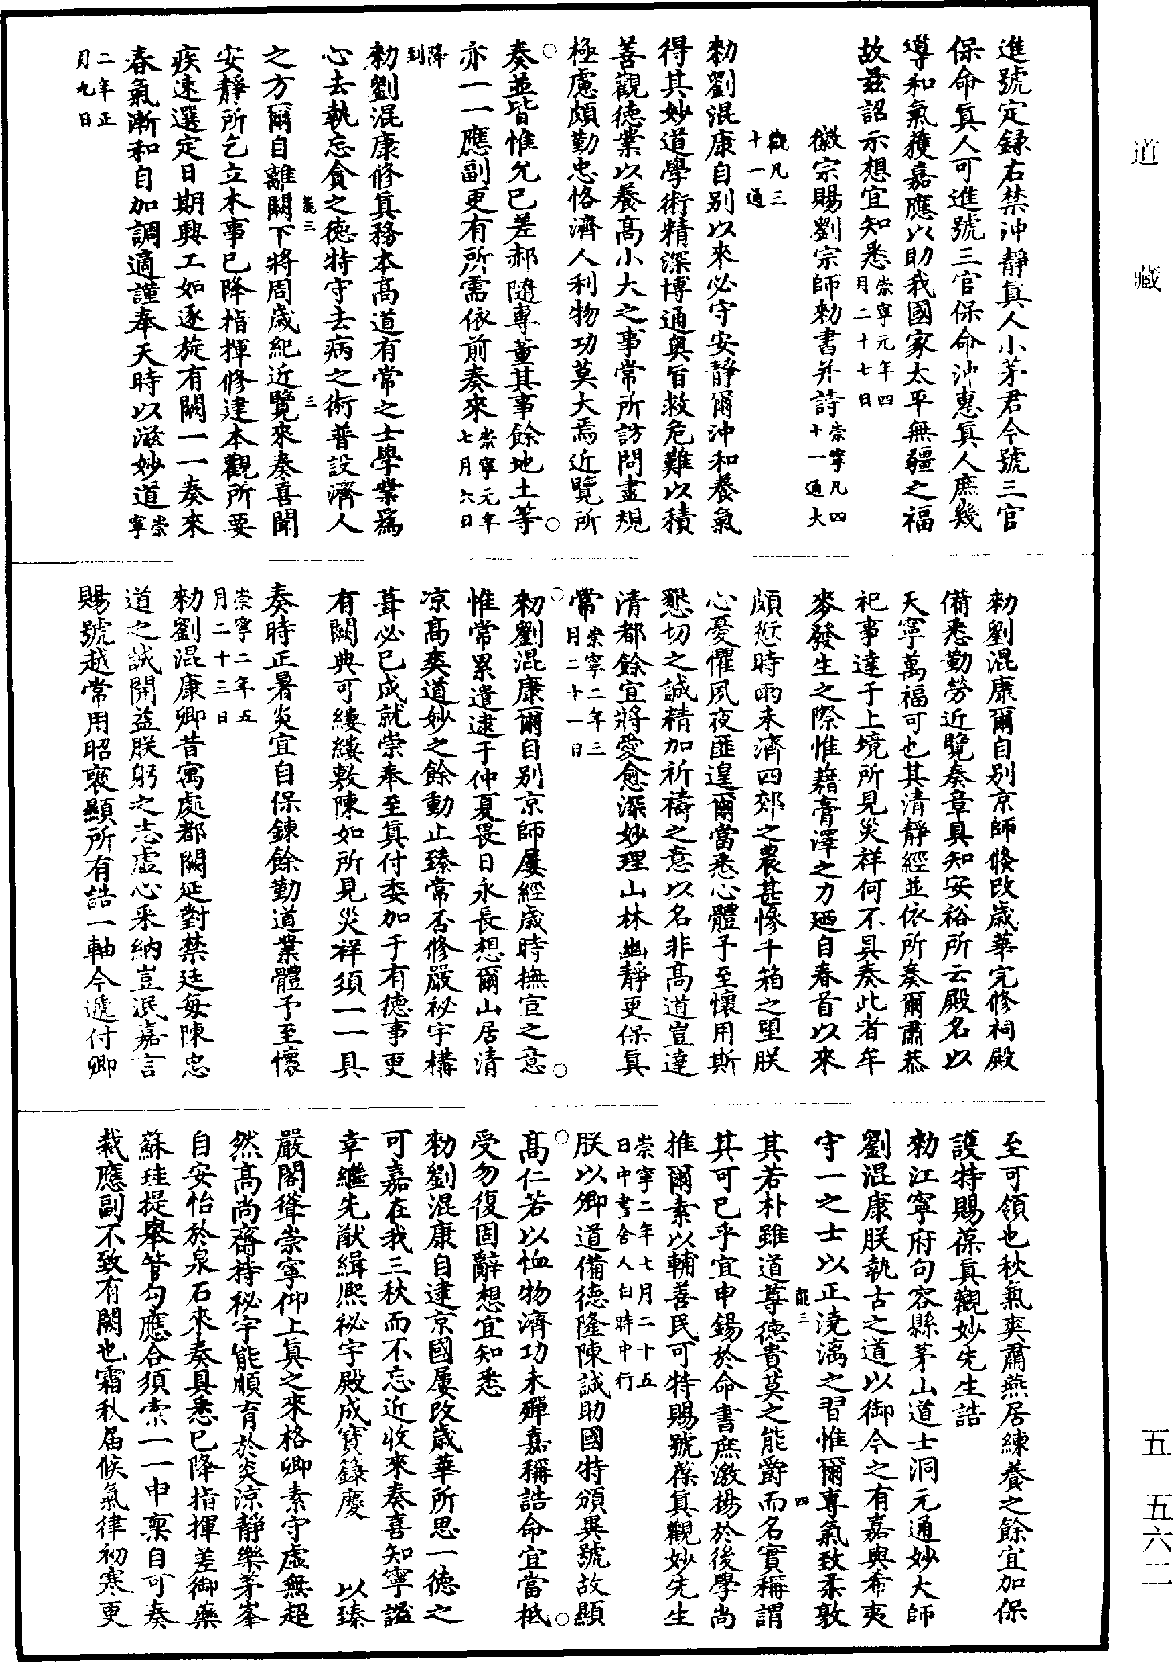 道藏
五 五六二
進號定錄右禁沖靜真人小茅君今號三官
保命真人可進號三官保命沖惠真人庶幾
導和氣獲嘉應以助我國家太平無疆之福
故茲詔示想宜知悉崇寧元年四月二十七日
徽宗賜劉宗師勑書并詩崇寧凡四十一通大觀凡三十一通
勑劉混康自別以來必守安靜爾沖和養氣
得其妙道學術精深博通奧旨救危難以積
善觀德業以養高小大之事常所訪問畫規
極慮頗勤忠恪濟人利物功莫大焉近覽所
奏並皆惟允已差郝隨專董其事餘地土等
亦一一應副更有所需依前奏來崇寧元年七月六日
降到
勑劉混康修真務本高道有常之士學業為
心去執忘貪之德特守去病之術普設濟人
之方爾自離闕下將周歲紀近覽來奏喜聞
安靜所乞立本事已降指揮修建本觀所要
疾速選定日期興工如逐旋有闕一一奏來
春氣漸和自加調適謹奉天時以滋妙道崇寧
二年正月九日
勑劉混康爾自別京師條改歲華完修祠殿
備悉勤勞近覽奏章具知安裕所云殿名以
天寧萬福可也其清靜經並依所奏爾肅恭
祀事達于上境所見災祥何不具奏此者牟
麥發生之際惟藉膏澤之力迺自春首以來
頗愆時雨未濟四郊之農甚慘千箱之望朕
心憂懼夙夜匪遑爾當悉心體予至懷用斯
懇切之誠精加祈禱之意以名非高道豈達
清都餘宜將愛愈深妙理山林幽靜更保真
常崇寧二年三月二十一日
勑劉混康爾自別京師屢經歲時撫宣之意
惟常累遣逮于仲夏畏日永長想爾山居清
凉高爽道妙之餘動止臻常否修嚴祕宇構
葺必已成就崇奉至真付委加于有德事更
有闕典可縷縷敷陳如所見災祥須一一具
奏時正暑炎宜自保鍊餘勤道業體予至懷
崇寧二年五月二十三日
勑劉混康卿昔寓處都闕延對禁廷每陳忠
道之誠開益朕躬之志虛心釆納豈泯嘉言
賜號越常用昭褒顯所有誥一軸今遞付卿
至可領也秋氣爽肅燕居練養之餘宜加保
護特賜葆真觀妙先生誥
勑江寧府句容縣茅山道士洞元通妙大師
劉混康朕執古之道以御今之有嘉與希夷
守一之士以正澆漓之習惟爾專氣致柔敦
其若朴雖道尊德貴莫之能爵而名實稱謂
其可已乎宜申錫於命書庶激揚於後學尚
推爾素以輔善民可特賜號葆真觀妙先生
崇寧二年七月二十五日中書舍人白時中行
朕以卿道備德隆陳誠助國特頒異號故顯
高仁若以恤物濟功未殫嘉稱誥命宜當柢
受勿復固辭想宜知悉
勑劉混康自違京國屢改歲華所思一德之
可嘉在我三秋而不忘近收來奏喜知寧謐
幸繼先猷緝熙祕宇殿成寶籙慶　以臻
嚴閣聳崇寧仰上真之來格卿素守虛無超
然高尚齋持秘宇能順育於炎涼靜樂茅峯
自安怡於泉石來奏具悉已降指揮差御藥
蘇珪提舉管勾應合須索一一申稟自可奏
裁應副不致有闕也霜秋届候氣律初寒更